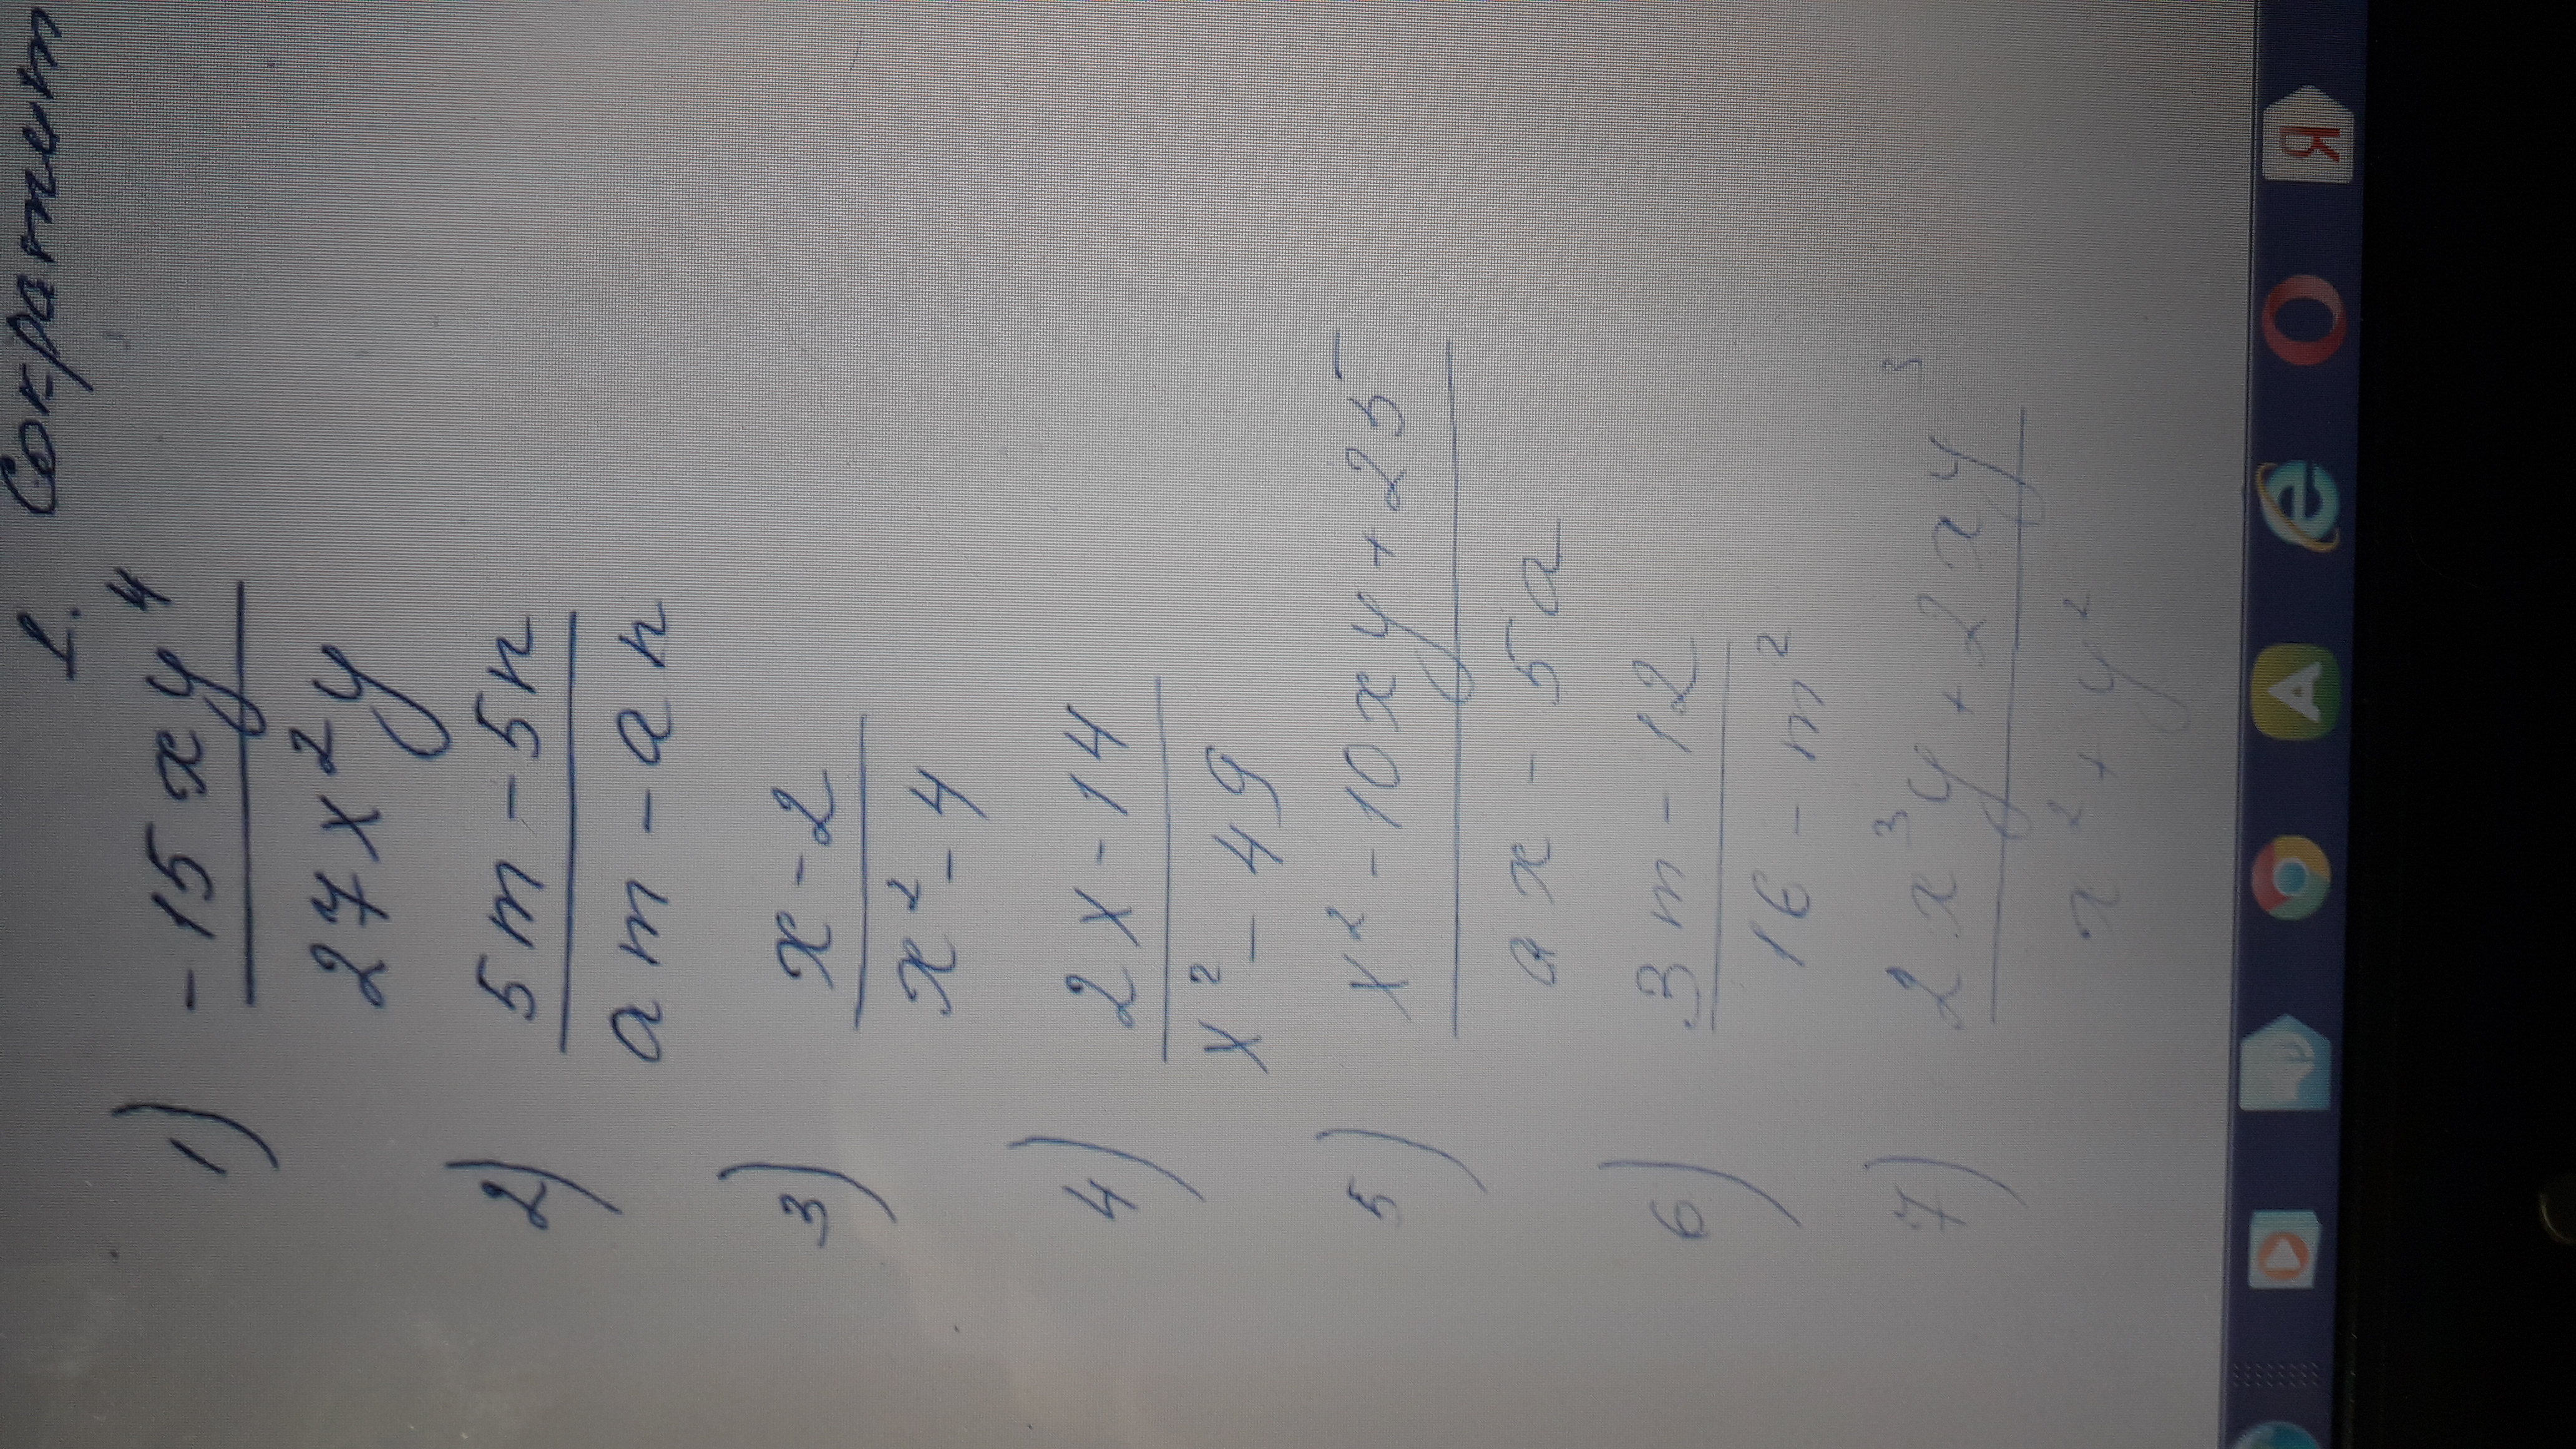 1. Сократит
1) -15xy⁴
27x²y
2) 5m-5n
am-an
3) x-2
x²-4
4) 2x-14
x²-49
5) x²-10xy+25
ax-5a
6) 3m-12
16-m²
7) 2x³y+2xy³
x²+y²
Я
A